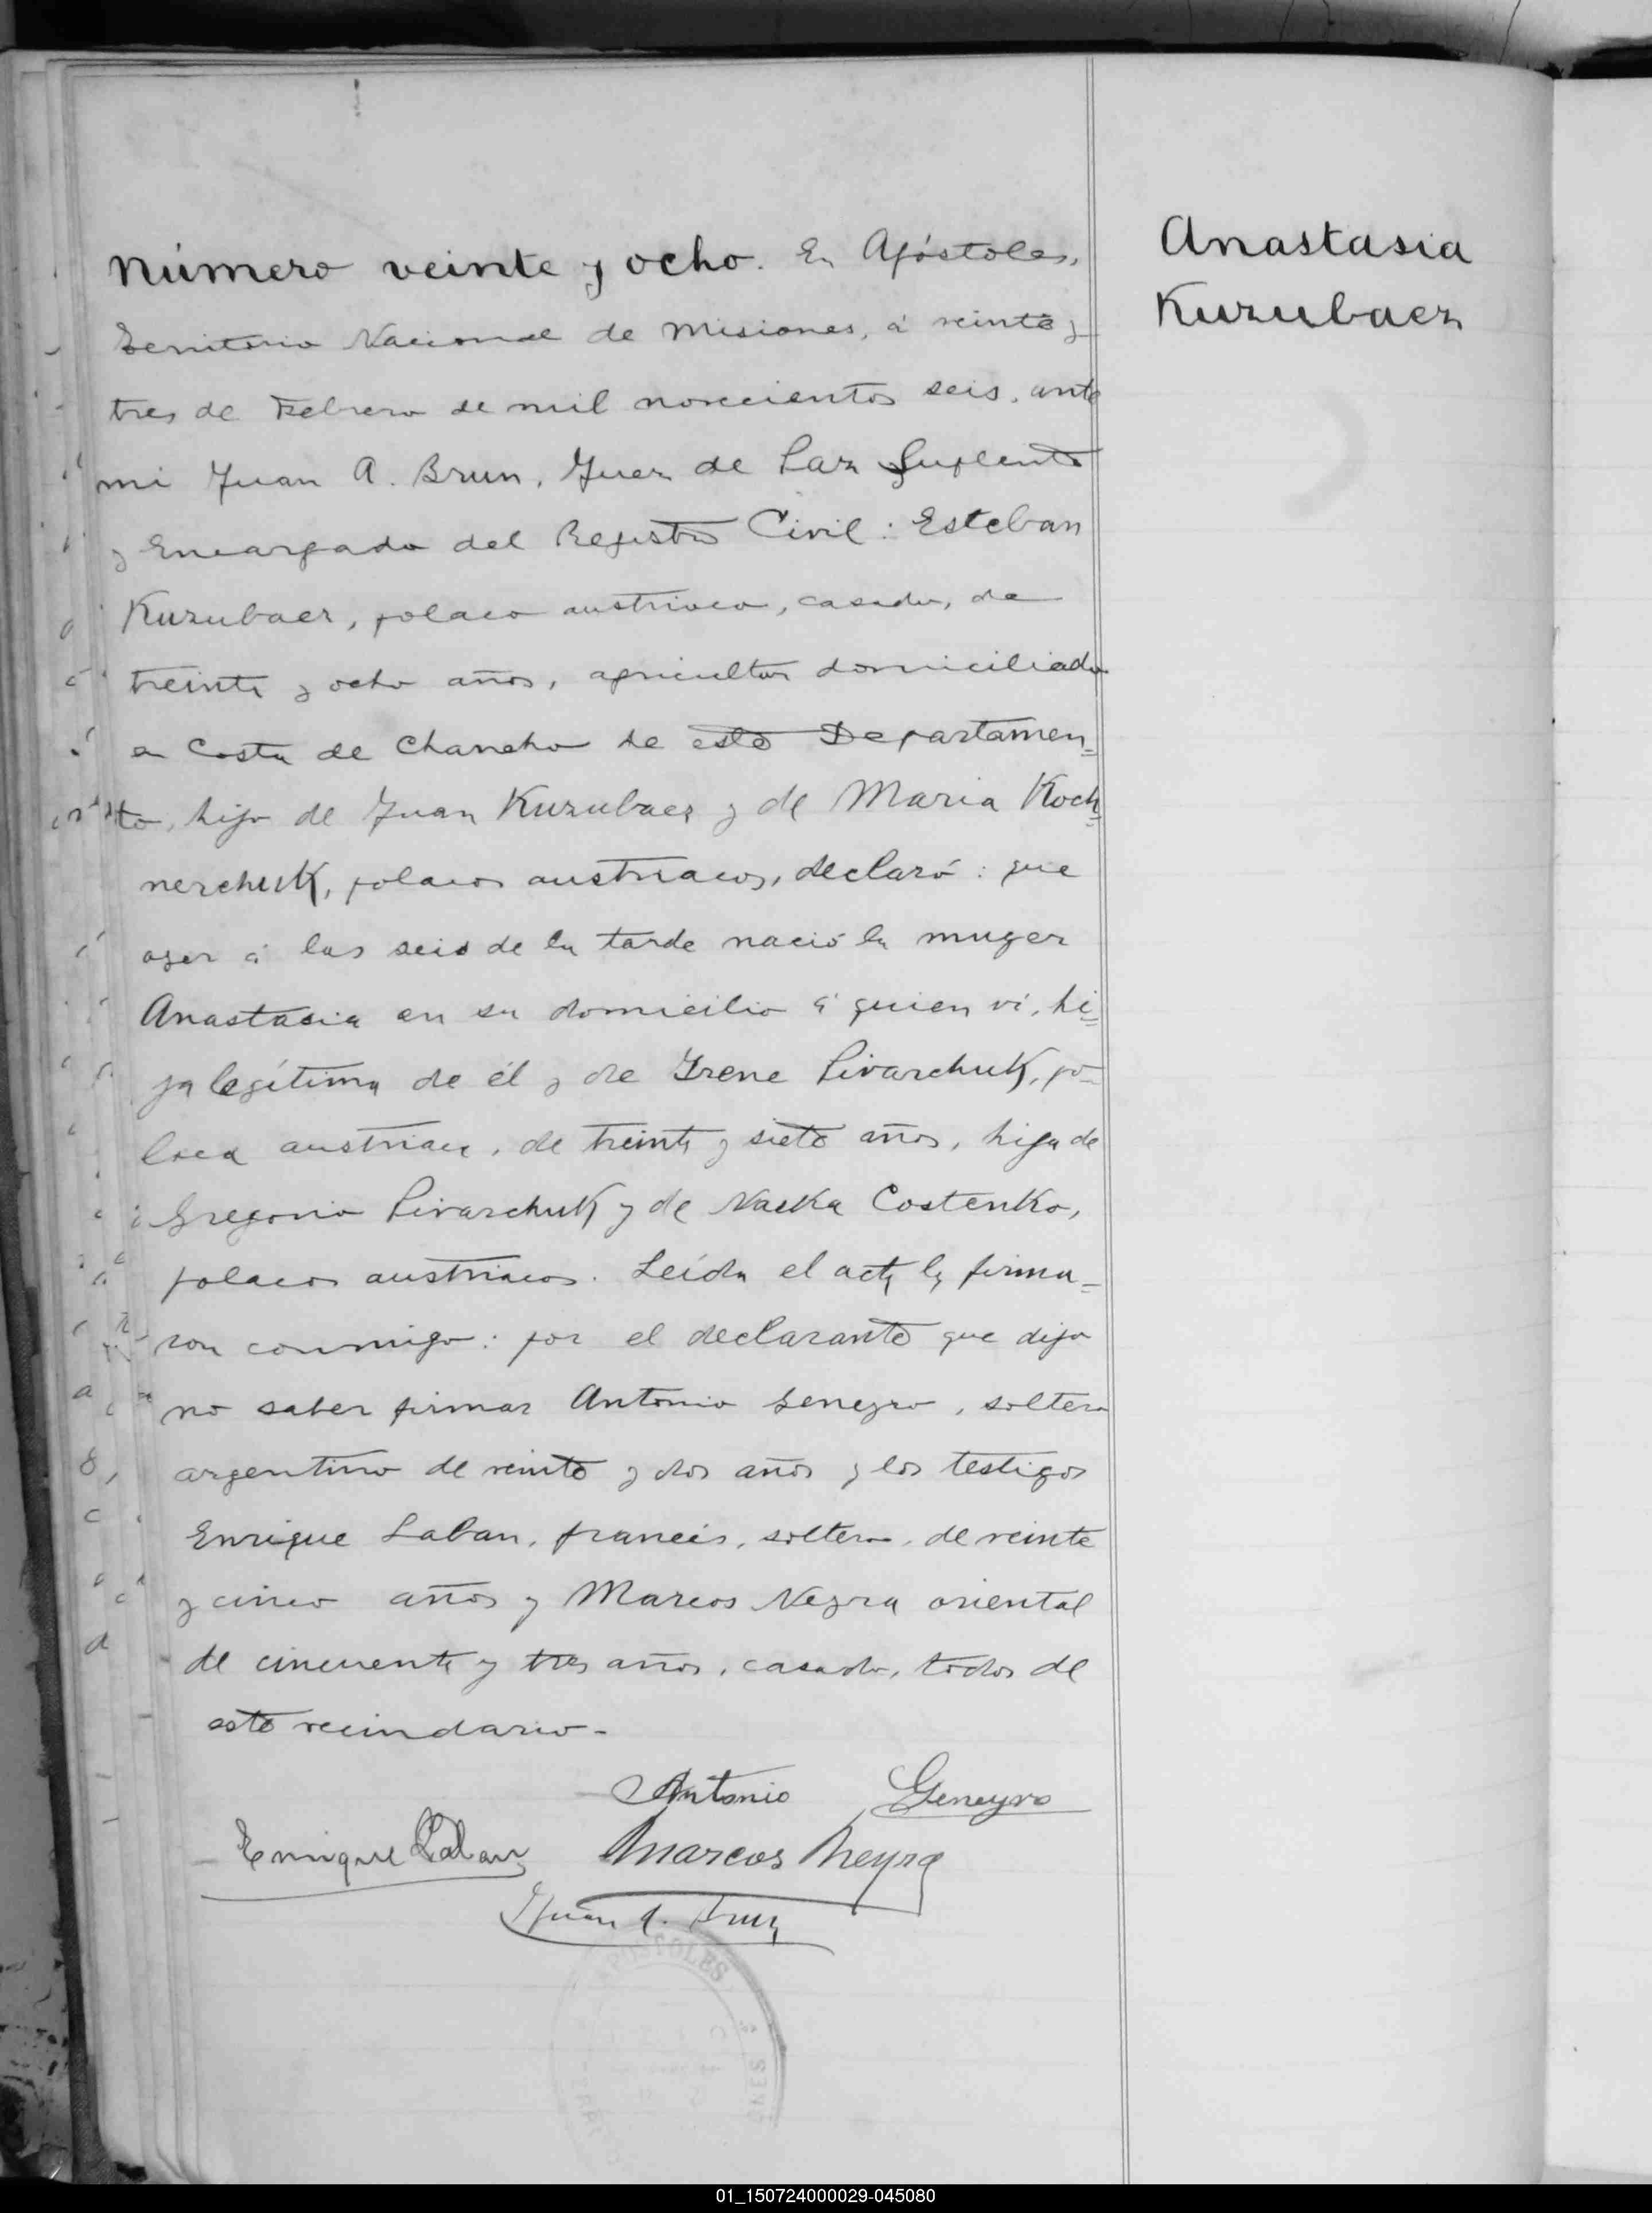 Número veinte y ocho. En Apóstoles,
Territorio Nacional de Misiones, á veinte y
tres de Febrero de mil novecientos seis, ante
mi Juan A. Brun, Juez de Paz Suplente
y Encargado del Registro Civil: Esteban
Kuzubaez, polaco austriaco, casado, de
treinta y ocho años, agricultor domiciliado
en Costa de Chancho de este Departamen=
to, hijo de Juan Kuzubaez y de Maria Koch=
nerchuk, polacos austriacos, declaró: que
ayer á las seis de la tarde nació la muger
Anastasia en su domicilio á quien vi, hi=
ja legítima de él y de Irene Pivarchuk, po=
laca austriaca, de treinta y siete años, hija de
Gregorio Pivarchuk y de Naska Costenko,
polacos austriacos. Leída el acta la firma=
ron conmigo: por el declarante que dijo
no saber firmar Antonio Geneyro, soltero
argentino de veinte y dos años y los testigos
Enrique Laban, francés, soltero, de veinte
y cinco años y Marcos Neyra oriental
de cincuenta y tres años, casado, todos de
este vecindario-
Antonio Geneyro
Enrique Laban Marcos Neyra
Juan A. Brun
APOSTOLES
Anastasia
Kuzubaez
01_150724000029-045080